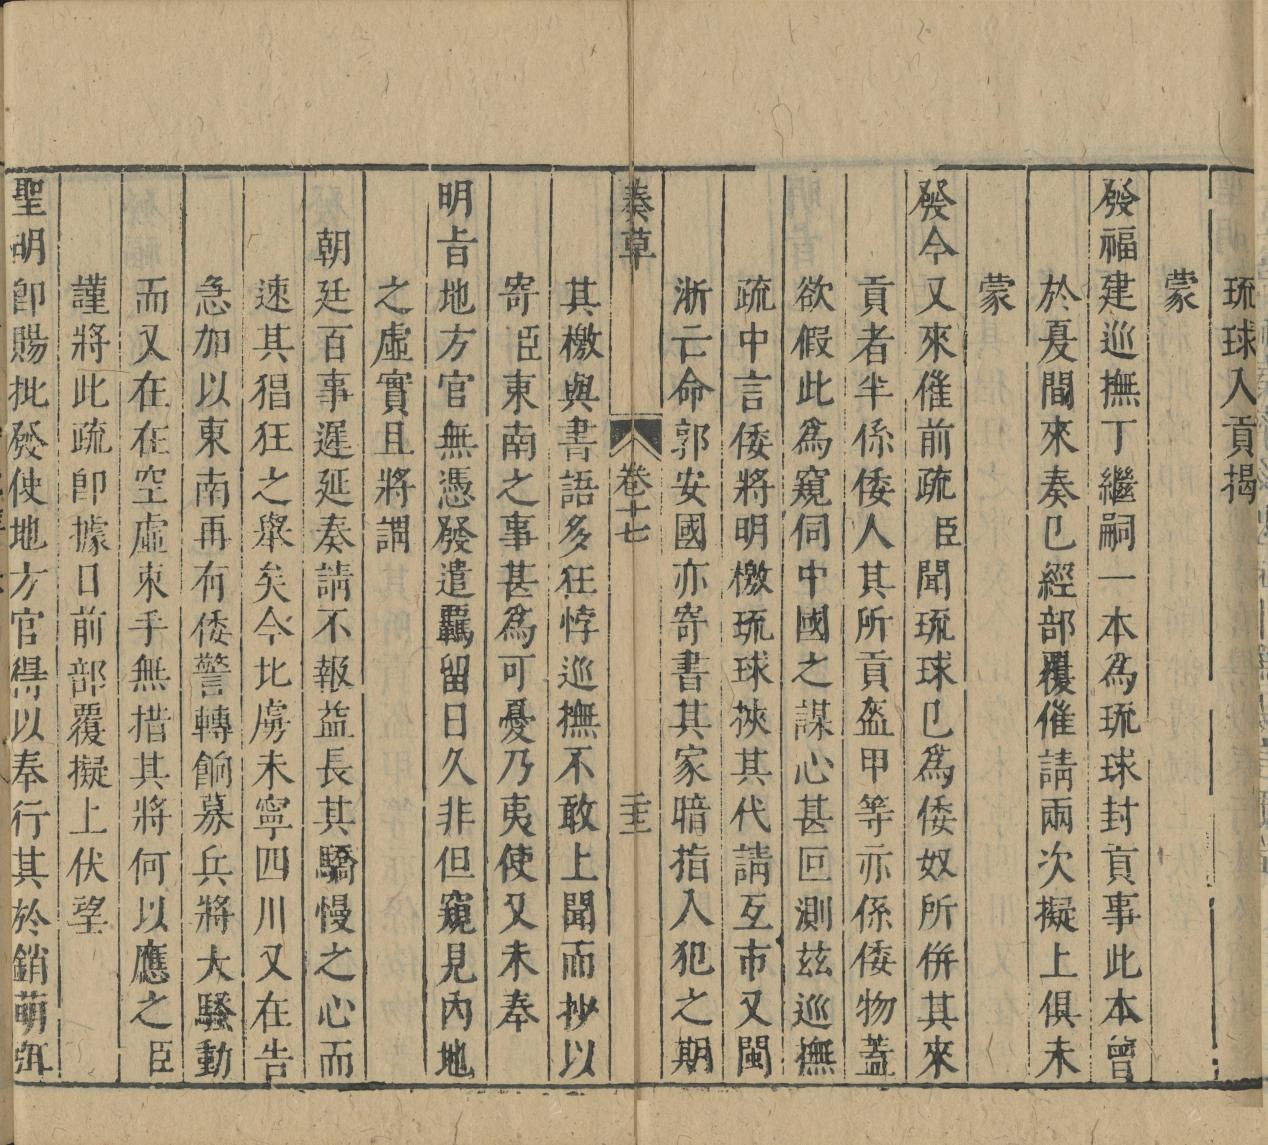 琉球入貢揭
蒙
發福建巡撫丁繼嗣一本為琉球封貢事此本曾
於夏間來奏已經部覆催請兩次擬上俱未
蒙
發今又來催前疏臣聞琉球已為倭奴所併其來
貢者半係倭人其所貢盔甲等亦係倭物蓋
欲假此為窺伺中國之謀心甚叵測茲巡撫
疏中言倭將明檄琉球挾其代請互市又閩
浙亡命郭安國亦寄書其家暗指入犯之期
奏草
卷十七
其檄與書語多狂悖巡撫不敢上聞而抄以
寄臣東南之事甚為可憂乃夷使又未奉
明旨地方官無憑發遣羈留日久非但窺見內地
之虛實且將謂
朝廷百事遲延奏請不報益長其驕慢之心而
速其猖狂之舉矣今北虜未寧四川又在告
急加以東南再有倭警轉餉募兵將大騷動
而又在在空虛束手無措其將何以應之臣
謹將此疏即據日前部覆擬上伏望
聖明卽賜批發使地方官得以奉行其於銷萌弭